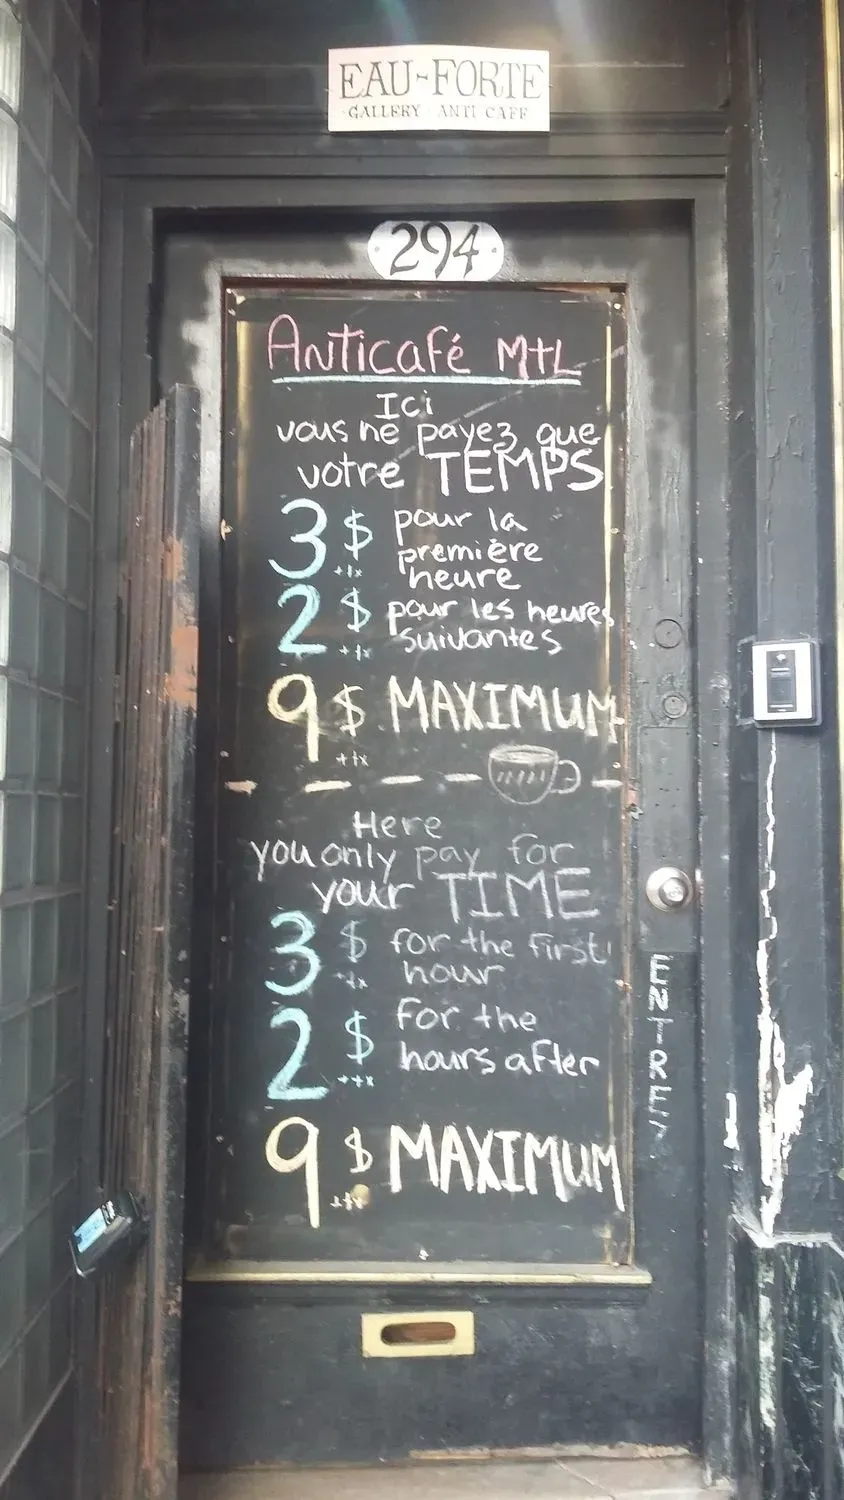 EAU-FORTE
GALLERY · ANTI CAFE
294
ANTICAFÉ MTL
Ici
vous ne payez que
votre TEMPS
3 $ pour la
première
+tx heure
2 $ pour les heures
+tx suivantes
9 $ MAXIMUM
+tx
Here
you only pay for
your TIME
3 $ for the first
+tx hour
2 $ for the
hours after
+tx
9 $ MAXIMUM
+tx
ENTREZ